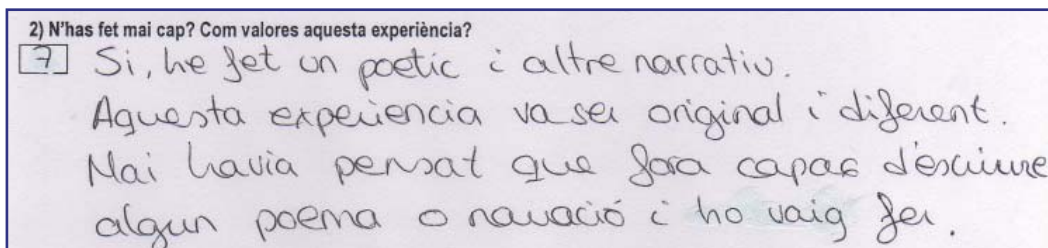 2) N'has fet mai cap? Com valores aquesta experiència?
7 Si, he fet un poetic i altre narratiu.
Aquesta experiencia va ser original i diferent.
Mai havia pensat que fora capaç d'escriure
algun poema o narració i ho vaig fer.